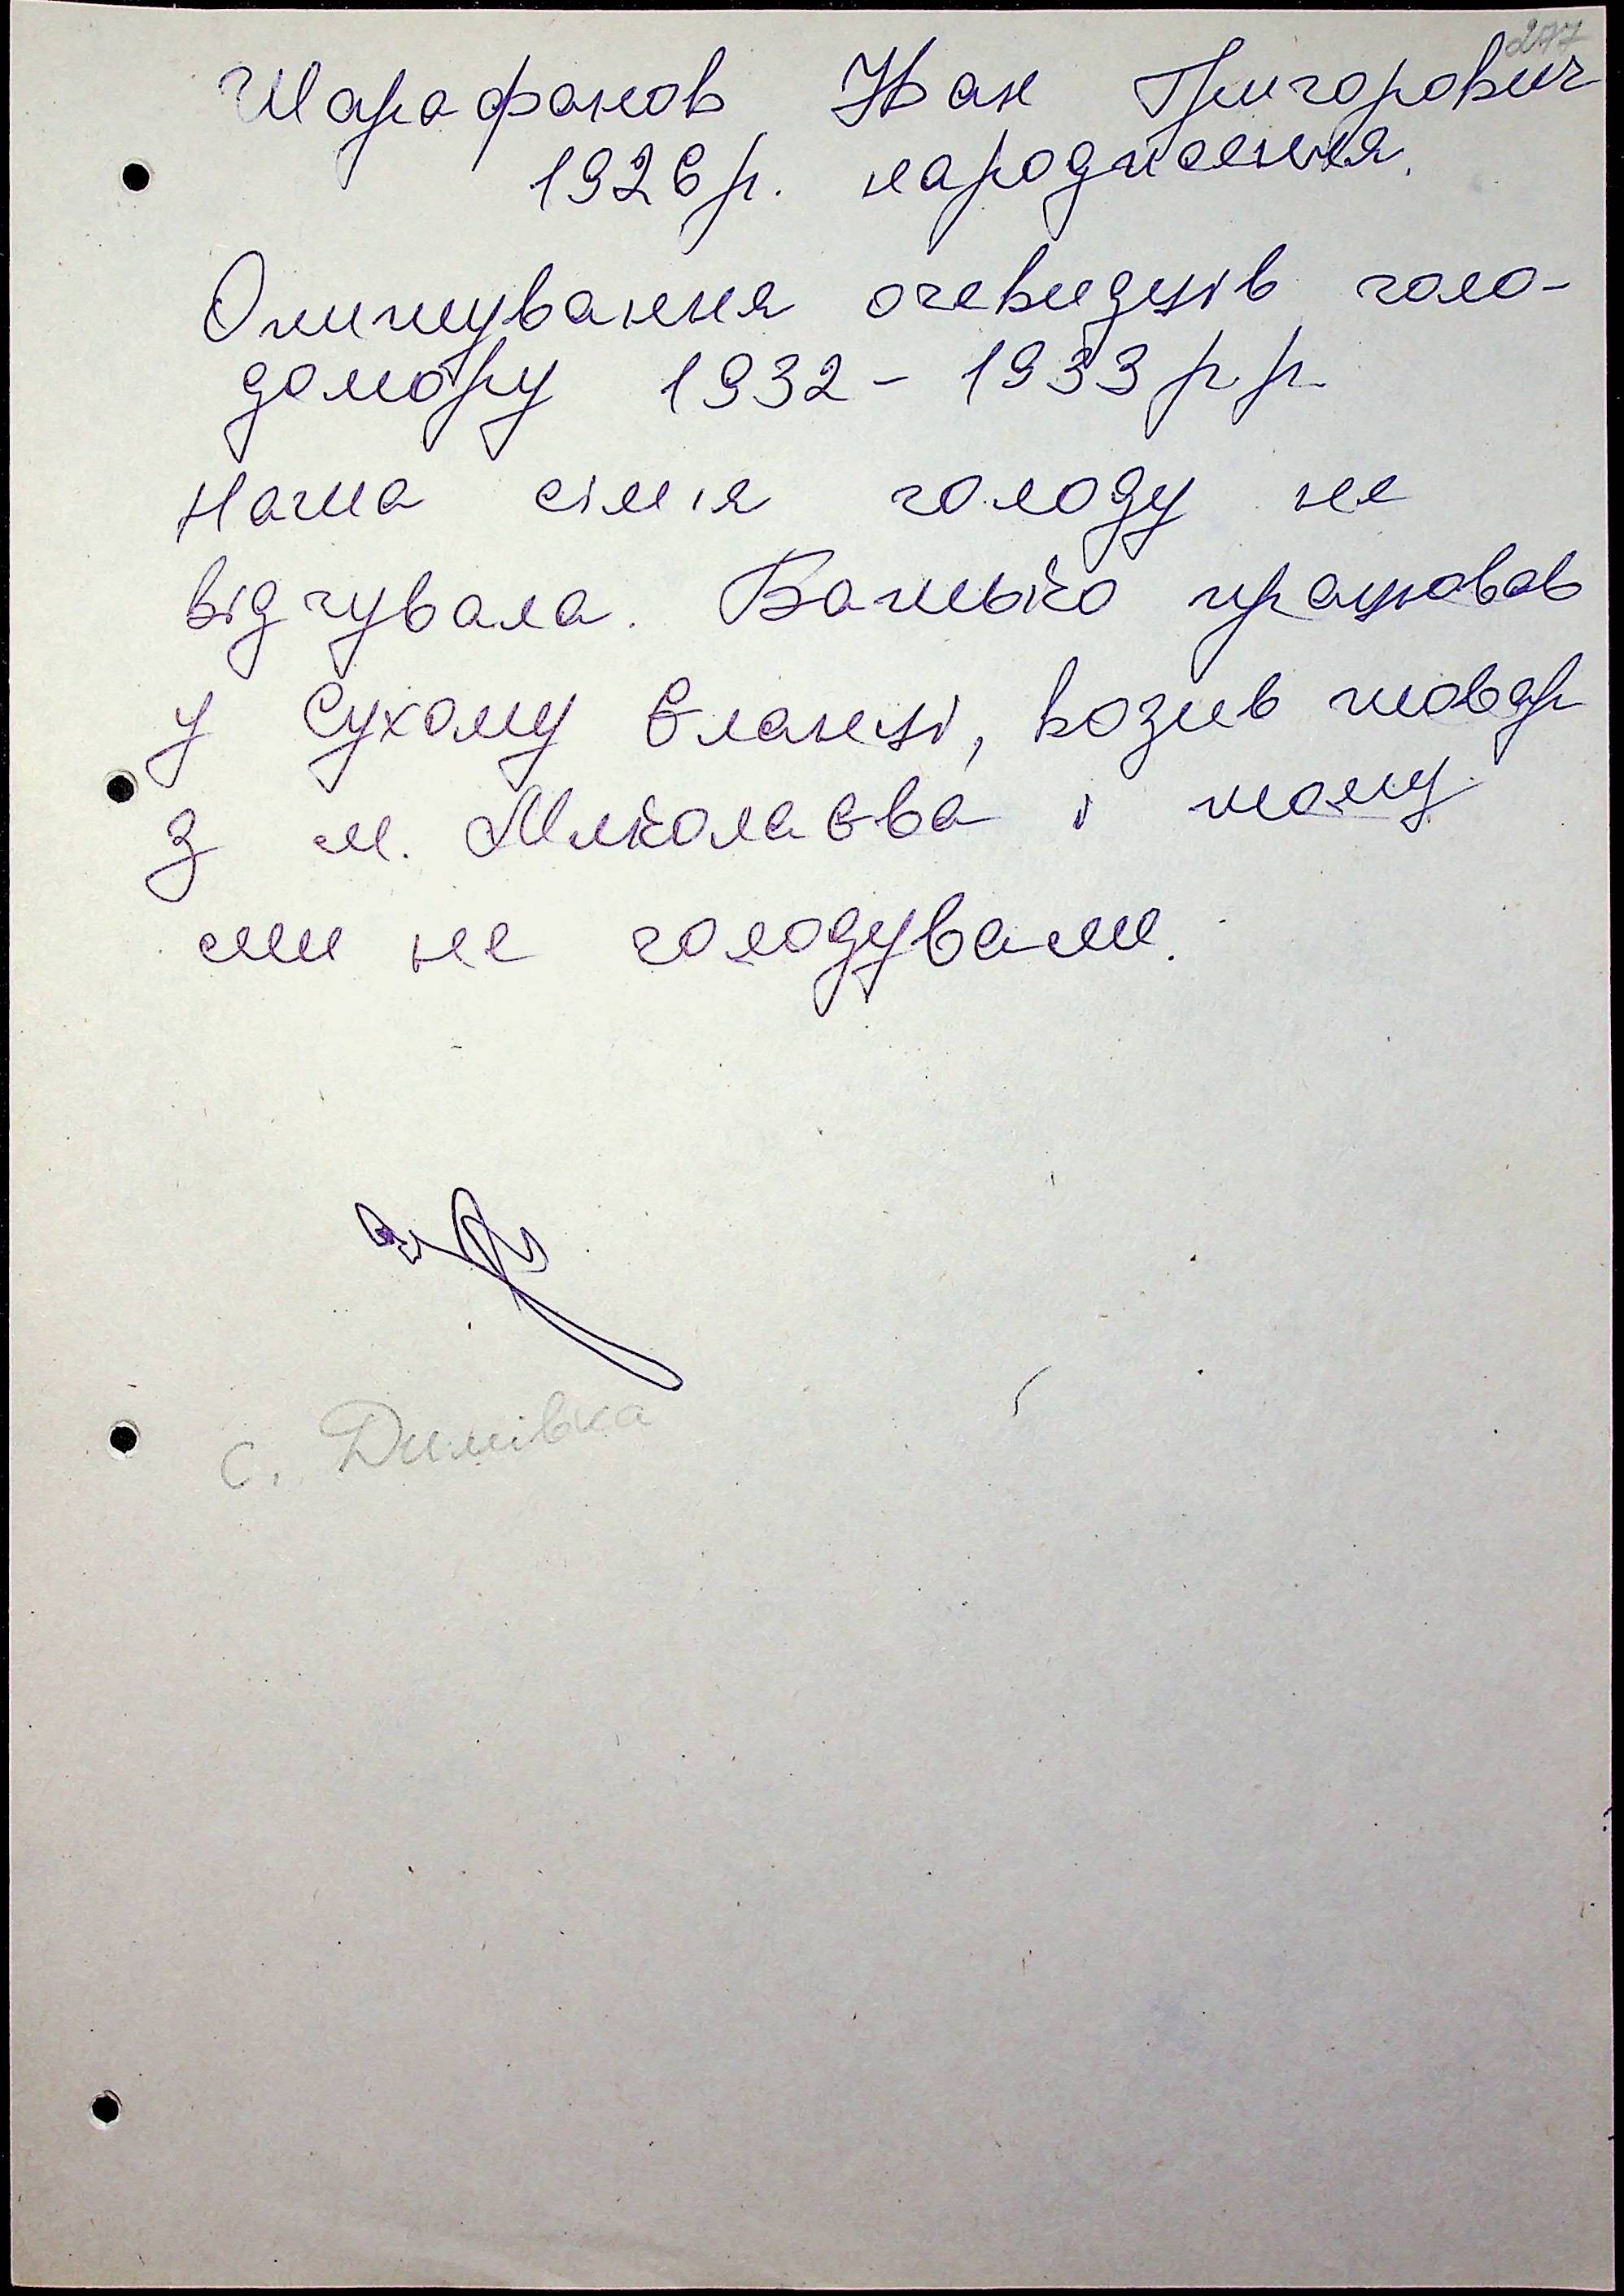 277
Шарафанов Іван Григорович
1926 р. народження.
Опитування очевидців голо-
домору 1932 - 1933 р.р.
Наша сімія голоду не
відчувала. Батько працовав
у Сухому Єланці, возив товар
з м. Миколаєва і тому
ми не голодували.
с. Димівка